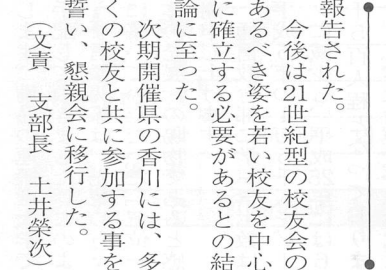 報告された。
今後は21世紀型の校友会の
あるべき姿を若い校友を中心
に確立する必要があるとの結
論に至った。
次期開催県の香川には、多
くの校友と共に参加する事を
誓い、懇親会に移行した。
(文責 支部長 土井榮次)